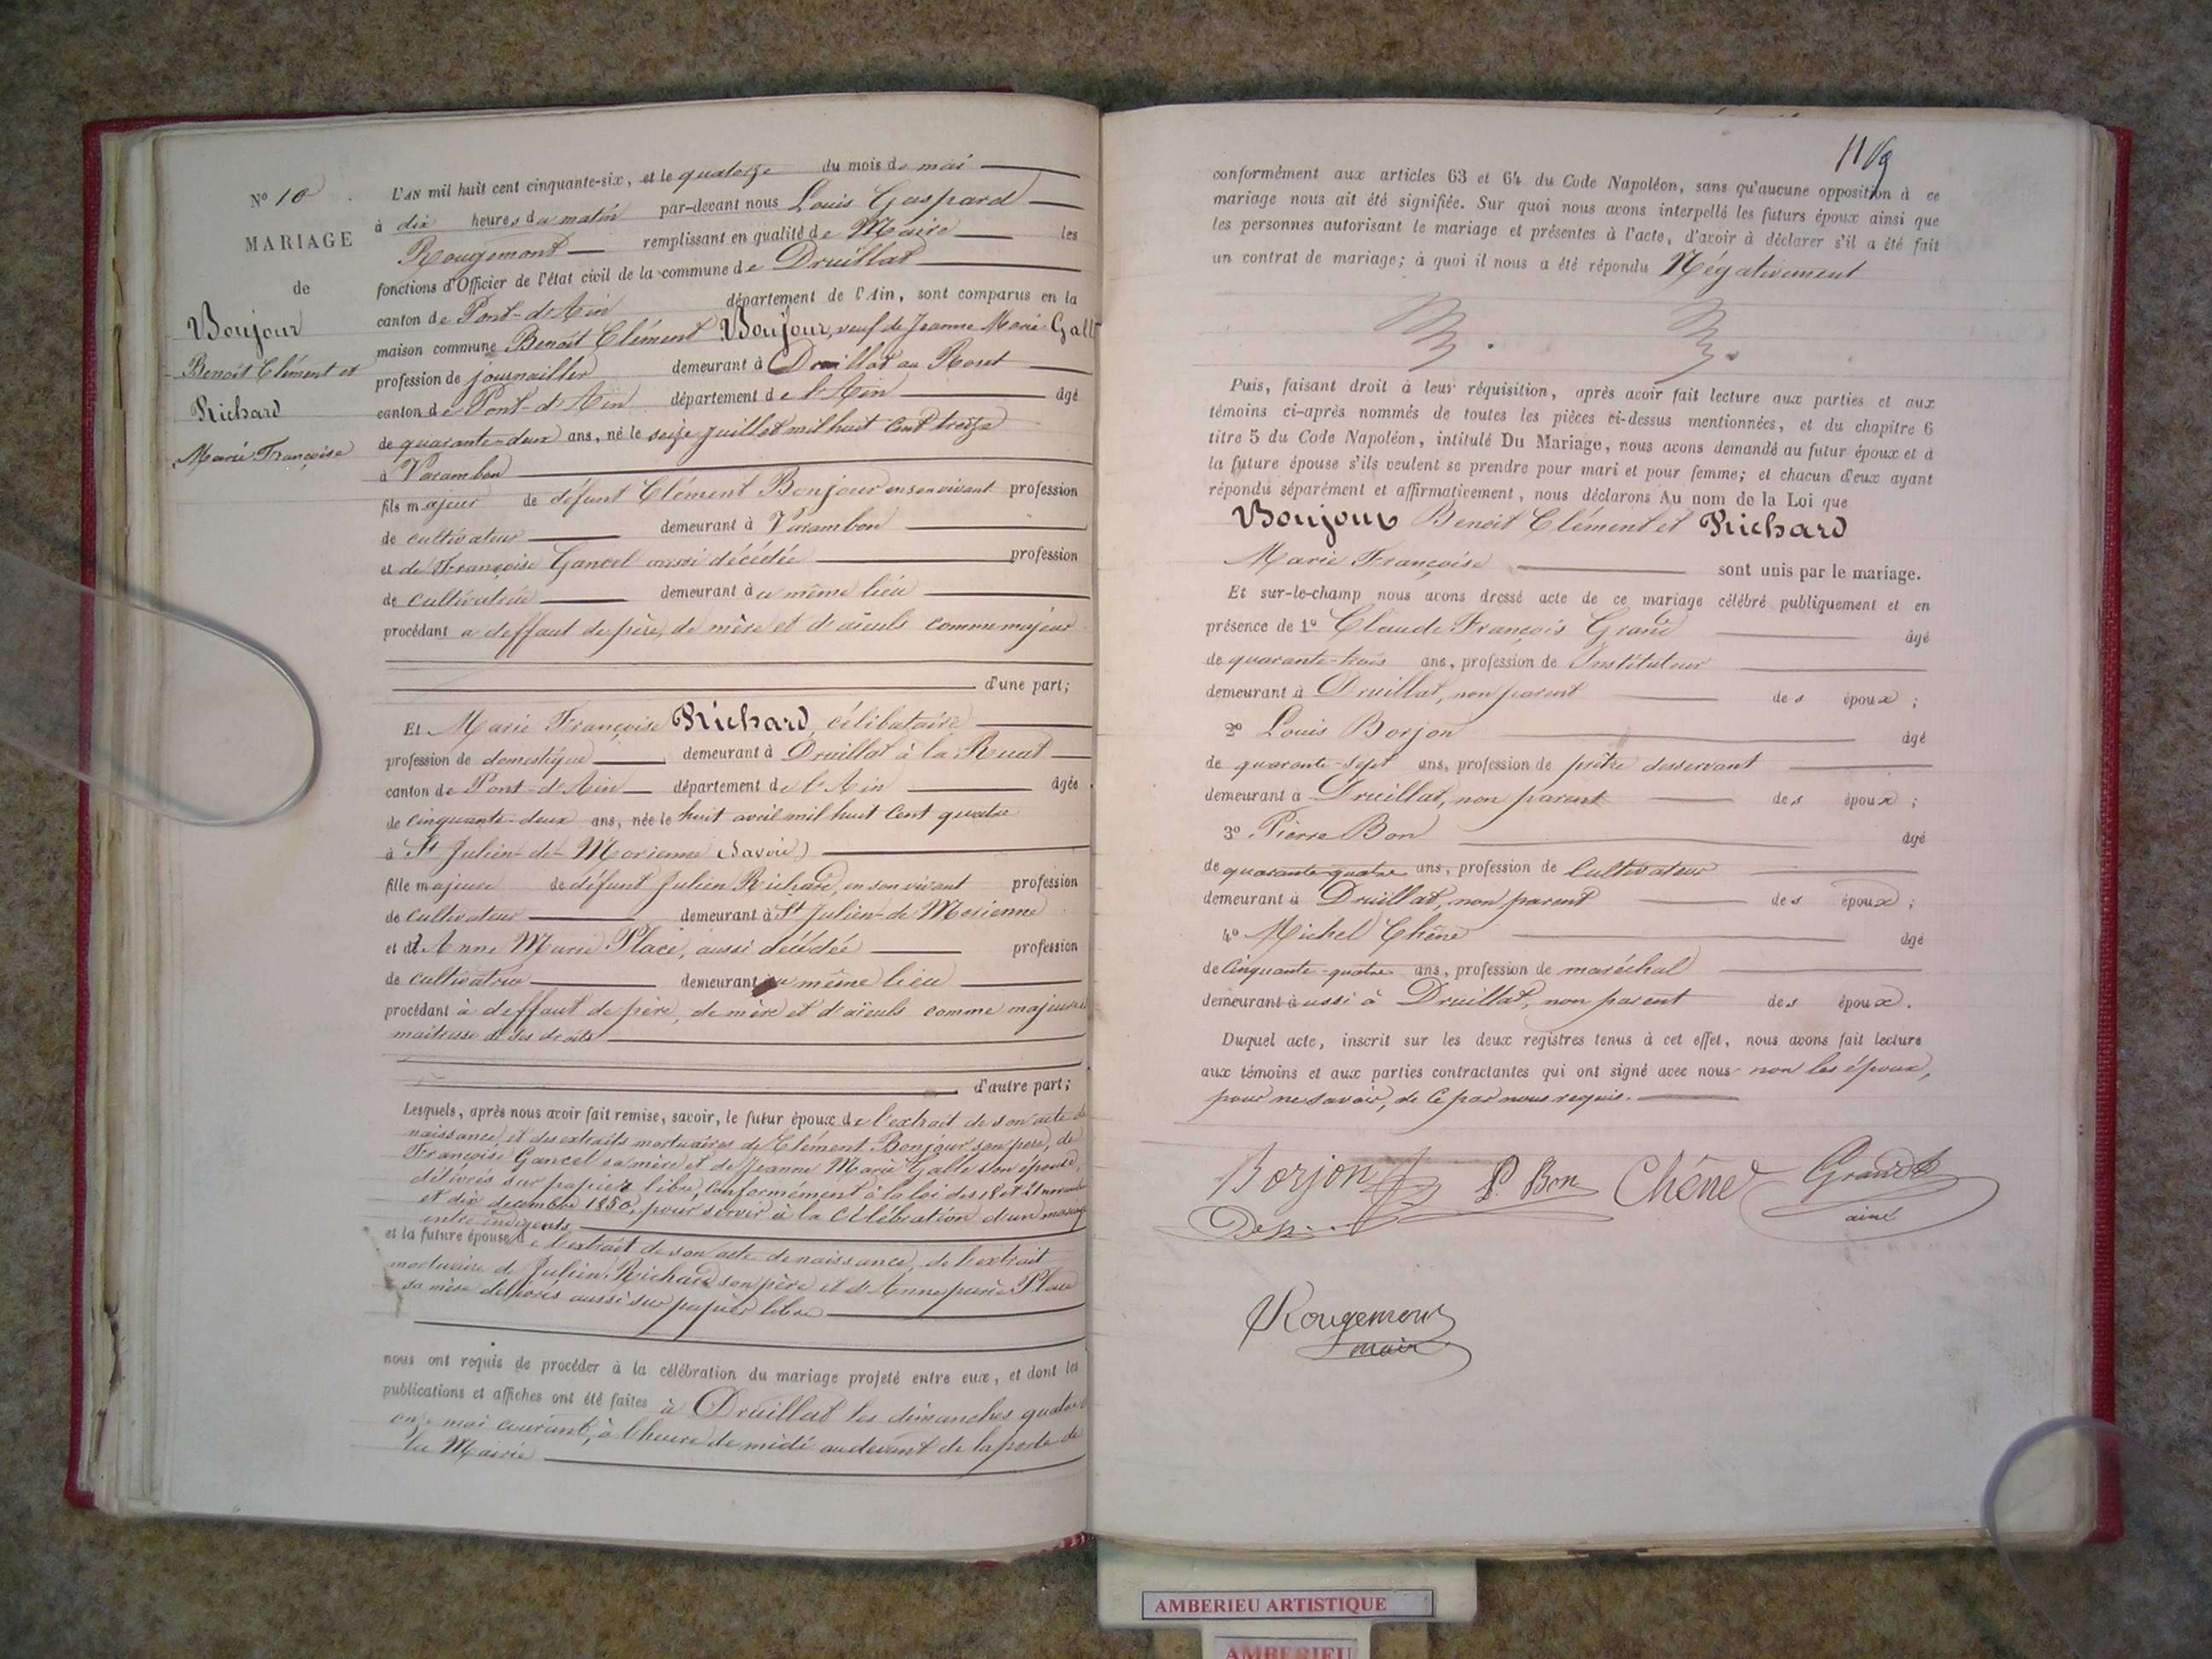 N° 10
MARIAGE
de
Boujour
Benoit Clément et
Richard
Marie Françoise
L'AN mil huit cent cinquante-six, et le quatorze du mois de mai
à dix heures du matin par-devant nous Louis Gaspard
Rougemont remplissant en qualité de Maire les
fonctions d'Officier de l'état civil de la commune de Druillat
canton de Pont-d'Ain département de l'Ain, sont comparus en la
maison commune Benoit Clément Boujour, veuf de Jeanne Marie Gallt
profession de journailler demeurant à Druillat au Ront
canton de Pont-d'Ain département de l'Ain âgé
de quarante-deux ans, né le seize juillet mil huit cent treize
à Varambon
fils majeur de défunt Clément Bonjour en son vivant profession
de cultivateur demeurant à Varambon
et de Françoise Gancel aussi décédée profession
de cultivatrice demeurant au même lieu
procédant a deffaut de père, de mère et d'aïeuls comme majeur
d'une part;
Et Marie Françoise Richard, célibataire
profession de domestique demeurant à Druillat à la Ruat
canton de Pont-d'Ain département de l'Ain âgée
de cinquante-deux ans, née le huit avril mil huit cent quatre
à St Julien-de-Morienne (Savoie)
fille majeure de défunt Julien Richard, en son vivant profession
de cultivateur demeurant à St Julien-de Morienne
et d'Anne Marie Place, aussi décédée profession
de cultivatrice demeurant au même lieu
procédant à deffaut de père, de mère et d'aïeuls comme majeure
maitresse de ses droits
d'autre part;
Lesquels, après nous avoir fait remise, savoir, le futur époux de l'extrait de son acte de
naissance et des extraits mortuaires de Clément Bonjour son père, de
Françoise Gancel sa mère et de Jeanne Marie Galle son épouse,
délivrés sur papier libre, conformément à la loi des 18 et 21 novembre
et dix decembre 1850, pour servir à la célébration d'un mariage
entre indigents
et la future épouse de l'extrait de son acte de naissance, de l'extrait
mortuaire de Julien Richard son père et d'Anne Marie Place
sa mère délivrés aussi sur papier libre
nous ont requis de procéder à la célébration du mariage projeté entre eux, et dont les
publications et affiches ont été faites à Druillat les dimanches quatre
onze mai courant, à l'heure de midi au devant de la porte de
la Mairie
119
conformément aux articles 63 et 64 du Code Napoléon, sans qu'aucune opposition à ce
mariage nous ait été signifiée. Sur quoi nous avons interpellé les futurs époux ainsi que
les personnes autorisant le mariage et présentes à l'acte, d'avoir à déclarer s'il a été fait
un contrat de mariage; à quoi il nous a été répondu Négativement
Puis, faisant droit à leur réquisition, après avoir fait lecture aux parties et aux
témoins ci-après nommés de toutes les pièces ci-dessus mentionnées, et du chapitre 6
titre 5 du Code Napoléon, intitulé Du Mariage, nous avons demandé au futur époux et à
la future épouse s'ils veulent se prendre pour mari et pour femme; et chacun d'eux ayant
répondu séparément et affirmativement, nous déclarons Au nom de la Loi que
Boujour Benoit Clément et Richard
Marie Françoise sont unis par le mariage.
Et sur-le-champ nous avons dressé acte de ce mariage célébré publiquement et en
présence de 1° Claude François Grand âgé
de quarante-trois ans, profession de Instituteur
demeurant à Druillat, non parent des époux ;
2° Louis Borjon âgé
de quarante-sept ans, profession de prêtre desservant
demeurant à Druillat, non parent des époux ;
3° Pierre Bon âgé
de quarante-quatre ans, profession de Cultivateur
demeurant à Druillat, non parent des époux ;
4° Michel Chêne âgé
de cinquante-quatre ans, profession de maréchal
demeurant aussi à Druillat, non parent des époux.
Duquel acte, inscrit sur les deux registres tenus à cet effet, nous avons fait lecture
aux témoins et aux parties contractantes qui ont signé avec nous non les époux,
pour ne savoir, de ce par nous requis.
Borjon P. Bon Chêne Grand
ainé
Rougemont
maire
AMBERIEU ARTISTIQUE
AMBERIEU